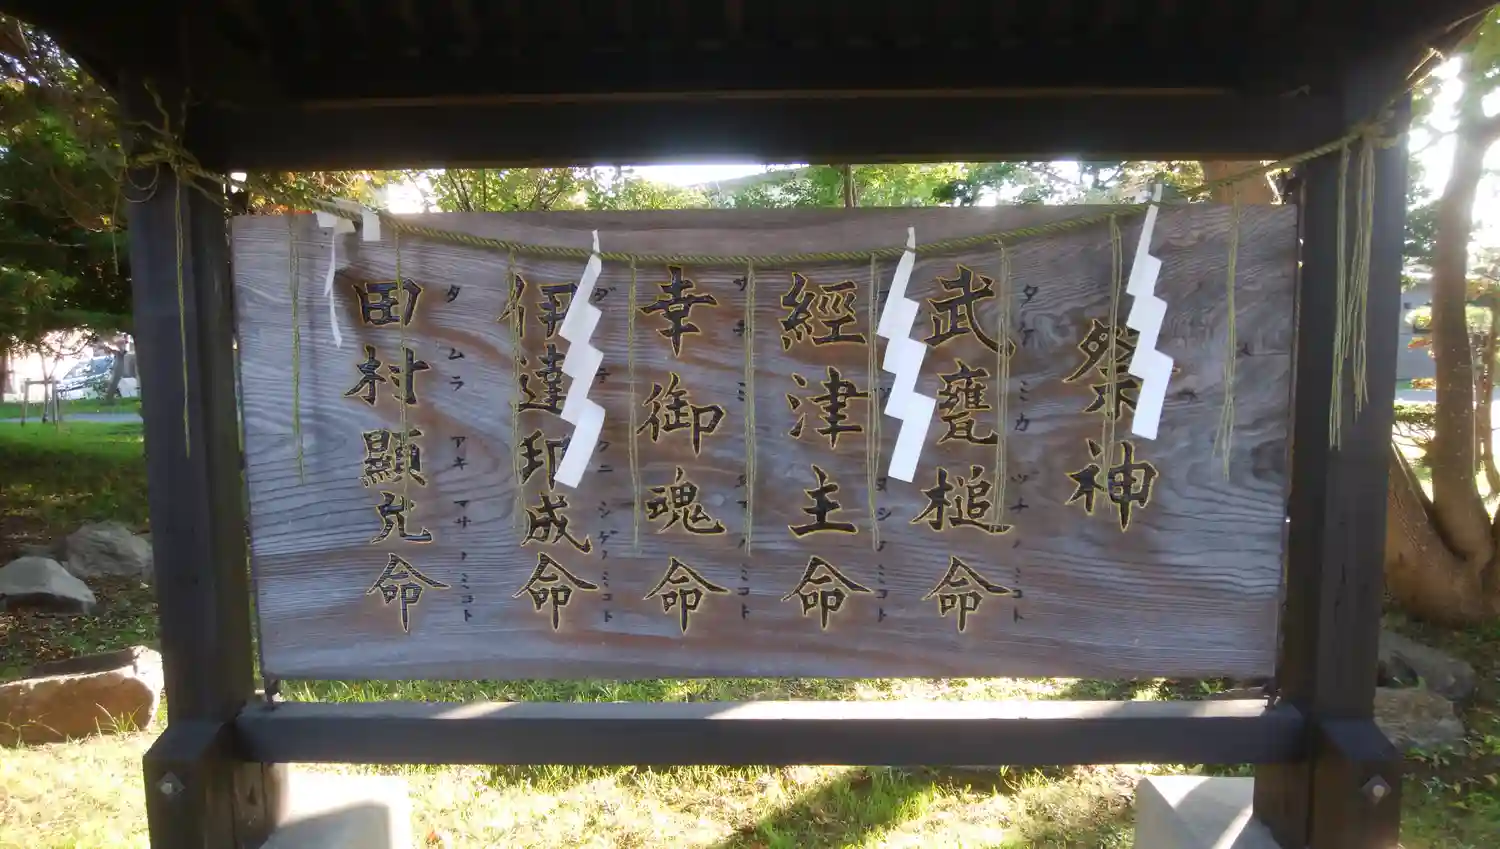 祭神
武甕槌命
タケミカツチノミコト
經津主命
ツヌシノミコト
幸御魂命
サチミタマノミコト
伊達邦成命
ダテクニシゲノミコト
田村顯允命
タムラアキマサノミコト